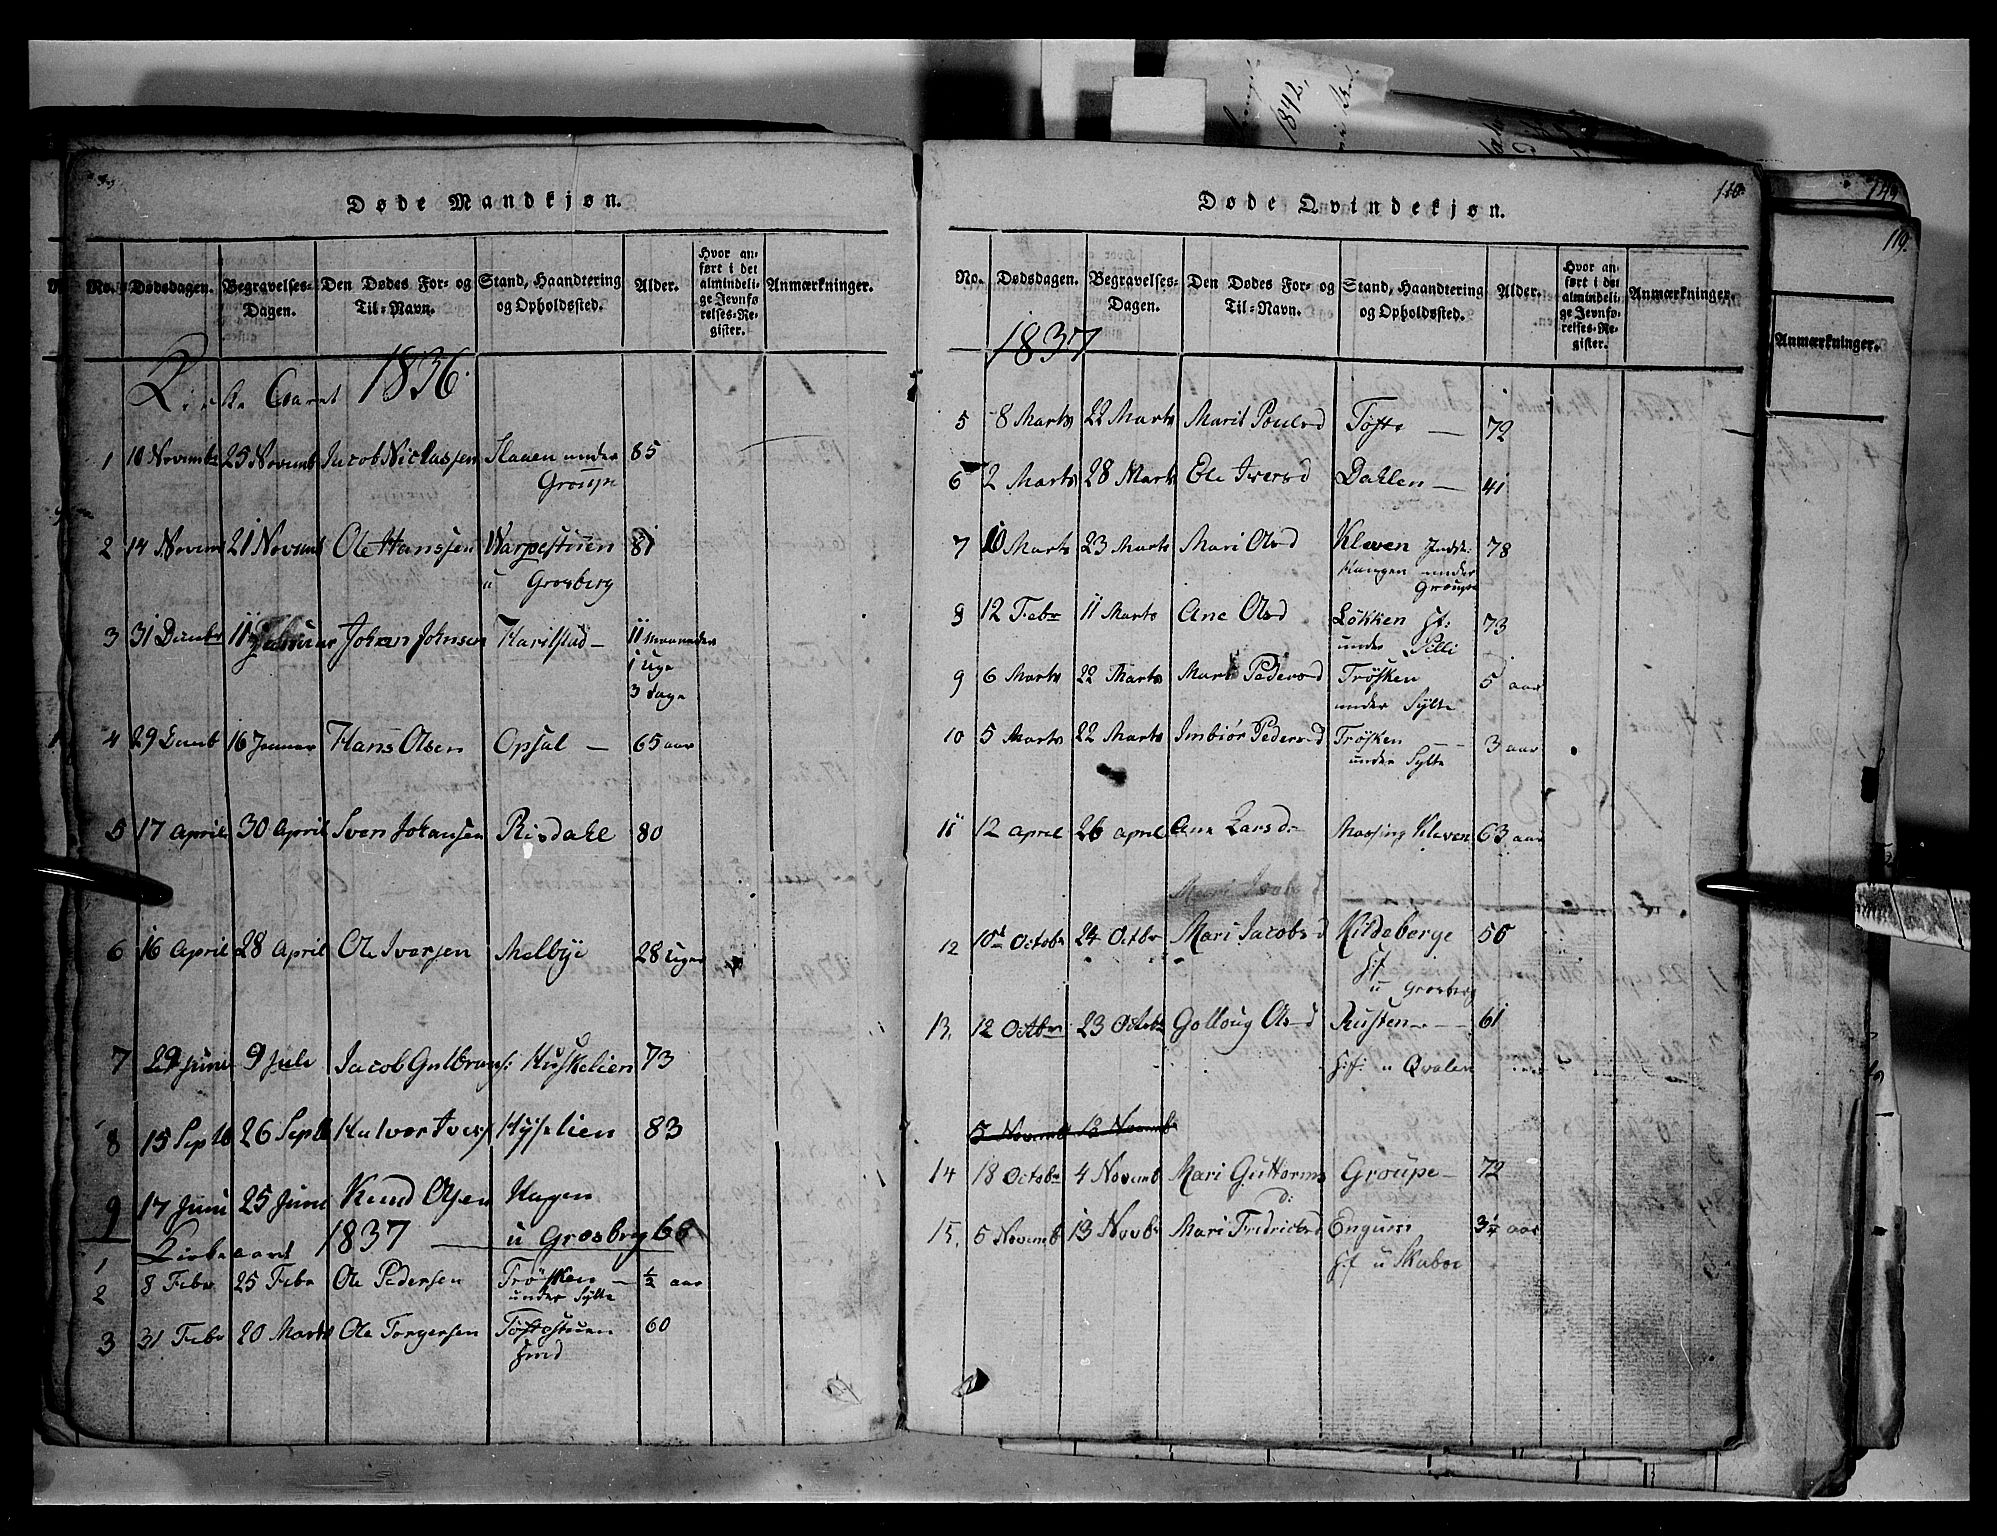 Døde Mandkjøn.
No. Dødsdagen. Begravelses-Dagen. Den Dødes For- og Til-Navn. Stand, Haandtering og Opholdssted. Alder. Hvor anført i det almindelige Jevnførelses-Register. Anmærkninger.
Kirke Aaret 1836.
1 10 Novembr 25 Novemb Jacob Nicklassen Haaen under 85
Groupe
2 14 Novem 21 Novemb Ole Hanssen Warpestuen 81
u Grosberg
3 31 Decmbr 11 Januar Johan Johnsen Harilstad - 11 Maaneder
1 Uge
3 Dage
4 29 Decmb 16 Januar Hans Olsen Opsal - 65 aar
5 17 April 30 April Sven Johansen Risdahl 80
6 16 April 28 April Ole Iversen Melbye 28 Uger
7 29 Juni 9 Juli Jacob Gulbrans: Huskelien 73
8 15 Septb 26 Septb Halvor Ivers Hyselien 83
9 17 Juni 25 Juni Knud Olsen Hagen
u Grosbrg 66
Kirkeaaret 1837
1
2 8 Febr 25 Febr Ole Pedersen Trøsken - ½ aar
under Sylte
3 31 Febr 20 Marts Ole Torgersen Toftestuen 60
Døde Qvindekjøn.
110
No. Dødsdagen. Begravelses-Dagen. Den Dødes For- og Til-Navn. Stand, Haandtering og Opholdssted. Alder. Hvor anført i det almindelige Jevnførelses-Register. Anmærkninger.
1837
5 8 Marts 22 Marts Marit Poulsd Tofte - 72
6 2 Marts 28 Marts Ele Iversd Dahlen - 41
7 10 Marts 23 Marts Mari Olsd Kleven 78
under
Groupe
8 12 Febr 11 Marts Ane Olsd Løkken Hf: 73
under Selli
9 6 Marts 22 Marts Marit Pedersd Trøsken 5 aar
under Sylte
10 5 Marts 22 Marts Imbiør Pedersd Trøsken 3 aar
under Sylte
11 12 April 26 April Ane Larsd- Massing Kleven 63 aar
12 10de Octobr 24 Octbr Mari Jacobsd Kildeberge 50
Hf
u Grosberg
13. 12 Octbr 23 Octobr Golloug Olsd Rusten - 61
Hf: u Qvalen
5 Novemb 13 Novemb
14 18 Octobr 4 Novemb Mari Guttorms Groupe - 72
d:
15. 5 Novemb 13 Novbr Mari Fredricksd Engum 3¼ aar
Hf u Skaboe
119.
Anmærkninger.
1842,